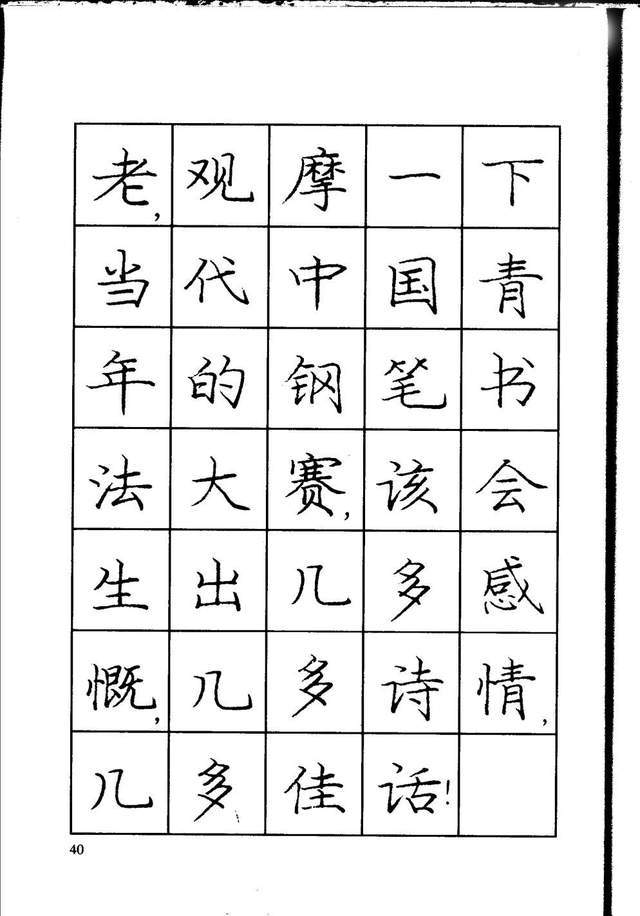 老,观摩一下
当代中国青
年的钢笔书
法大赛,该会
生出几多感
慨,几多诗情,
几多佳话!
40